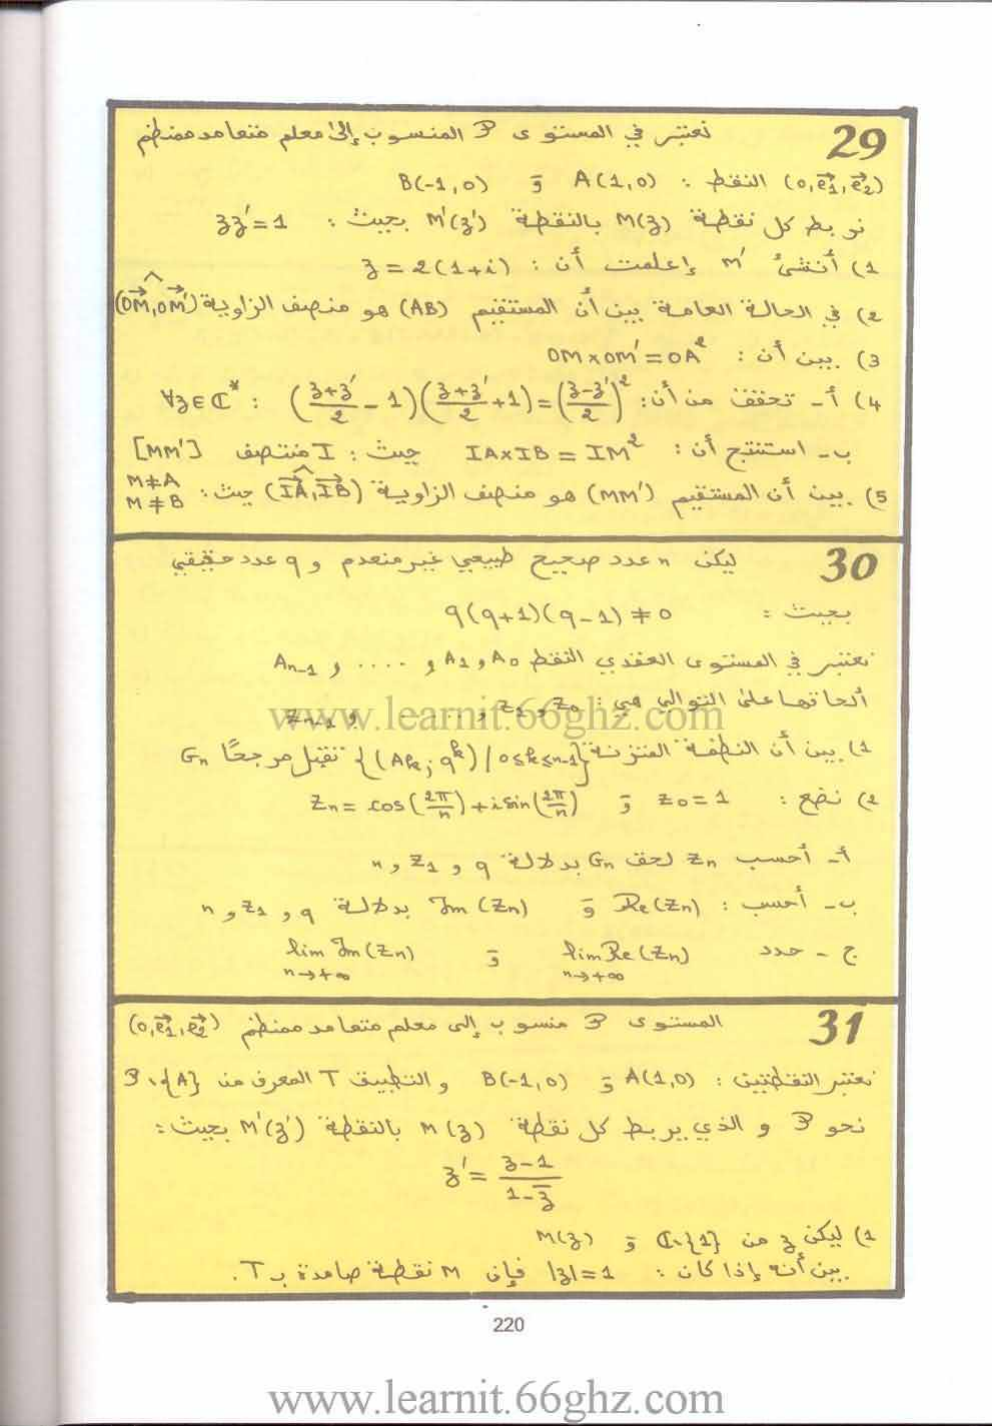 29 نعتبر في المستوى P المنسوب إلى معلم متعامد ممنظم
(O, e₁⃗, e₂⃗) النقط : A(1,0) و B(-1,0)
نربط كل نقطة M(z) بالنقطة M'(z') بحيث : zz' = 1
1) أنشئ M' إعلمت أن : z = 2(1+i)
2) في الحالة العامة بين أن المستقيم (AB) هو منصف الزاوية (OM⃗, OM'⃗)
3) بين أن : OM × OM' = OA²
4) أ - تحقق من أن : ∀z ∈ ℂ* : ((z+z')/2 - 1)((z+z')/2 + 1) = ((z-z')/2)²
ب - استنتج أن : IA × IB = IM² حيث : I منتصف [MM']
5) بين أن المستقيم (MM') هو منصف الزاوية (IA⃗, IB⃗) حيث : M ≠ A M ≠ B
30 ليكن n عدد صحيح طبيعي غير منعدم و q عدد حقيقي
بحيث : q(q+1)(q-1) ≠ 0
نعتبر في المستوى العقدي النقط A₀ و A₁ و .... و Aₙ₋₁
ألحاقها على التوالي هي : z₀ و z₁ و ... و zₙ₋₁
1) بين أن النظمة المتزنة {(Aₖ ; qᵏ) / 0≤k≤n-1} تقبل مرجحًا Gₙ
2) نضع : z₀ = 1 و zₙ = cos(2π/n) + i sin(2π/n)
أ - أحسب Zₙ لحق Gₙ بدلالة q و z₁ و n
ب - أحسب : Re(Zₙ) و Im(Zₙ) بدلالة q و z₁ و n
ج - حدد lim Re(Zₙ) n→+∞ و lim Im(Zₙ) n→+∞
31 المستوى P منسوب إلى معلم متعامد ممنظم (O, e₁⃗, e₂⃗)
نعتبر النقطتين : A(1,0) و B(-1,0) و التطبيق T المعرف من P\{A}
نحو P و الذي يربط كل نقطة M(z) بالنقطة M'(z') بحيث :
z' = (z-1)/(1-z̄)
1) ليكن z من ℂ\{1} و M(z)
بين أنه إذا كان : |z| = 1 فإن M نقطة صامدة بـ T.
220
www.learnit.66ghz.com
www.learnit.66ghz.com